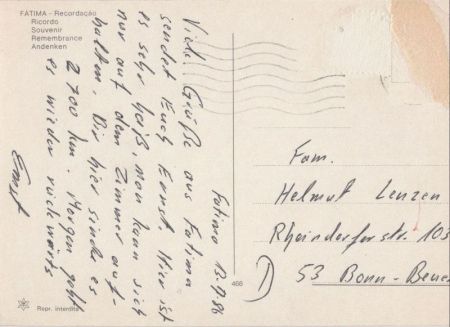 FATIMA - Recordação
Ricordo
Souvenir
Remembrance
Andenken
Fatima 13.9.86
Viele Grüße aus Fatima
sendet Euch Ernst. Hier ist
es sehr heiß, man kann sich
nur auf dem Zimmer auf-
halten. Bis hier sind es
2700 km. Morgen geht
es wieder rückwärts
Ernst
466
Repr. interdite
Fam.
Helmut Lenzen
Rheindorferstr. 103
D
53 Bonn-Beuel